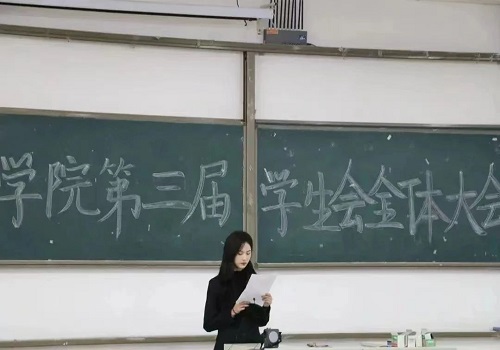 学院第三届 学生会全体大会